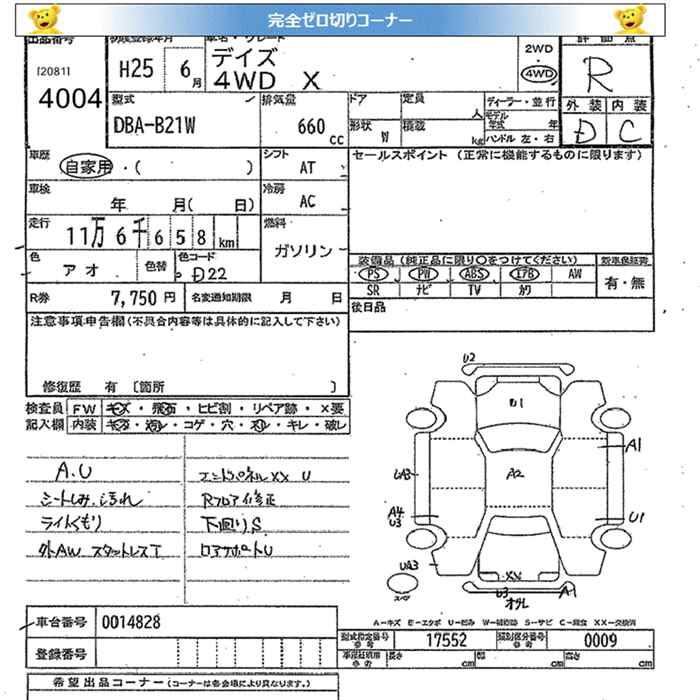 完全ゼロ切りコーナー
出品番号 初度登録年月 車名・グレード 評価点
120811
4004
H25 6月
デイズ
4WD X
2WD
4WD
R
外装 内装
D C
型式 排気量 ドア 定員 人 ディーラー・並行
DBA-B21W 660 cc
形状 W 積載 kg モデル年式 年
ハンドル 左・右
車歴 自家用・( )
シフト AT
セールスポイント (正常に機能するものに限ります)
車検 年 月( 日)
冷房 AC
走行 11万6千658km
燃料 ガソリン
色 アオ 色替 色コード D22
装備品 (純正品に限り○をつけてください) 新車保証書
PS PW ABS エアB AW 有・無
SR ナビ TV カワ
R券 7,750円 名変通知期限 月 日
後日品
注意事項申告欄(不具合内容等は具体的に記入して下さい)
修復歴 有 〔箇所 〕
検査員 FW キズ・飛石・ヒビ割・リペア跡・×要
記入欄 内装 キズ・汚レ・コゲ・穴・スレ・キレ・破レ
A.U
シートしみ、よごれ
ライトくもり
外AW スタットレスT
エンドパネルXX U
Rフロア修正
下廻りS
ロアサポートU
U2
U1
A1
UA3
A2
A4
U3
U1
UA3
XX
U3
A1
スペア
A−キズ E−エクボ U−凹み W−補修跡 S−サビ C−腐食 XX−交換済
車台番号 0014828
登録番号
型式指定番号 参考 17552 類別区分番号 参考 0009
車庫証明用 参考 長さ cm 幅 cm 高さ cm
希望出品コーナー(コーナーは各会場により異なります。)